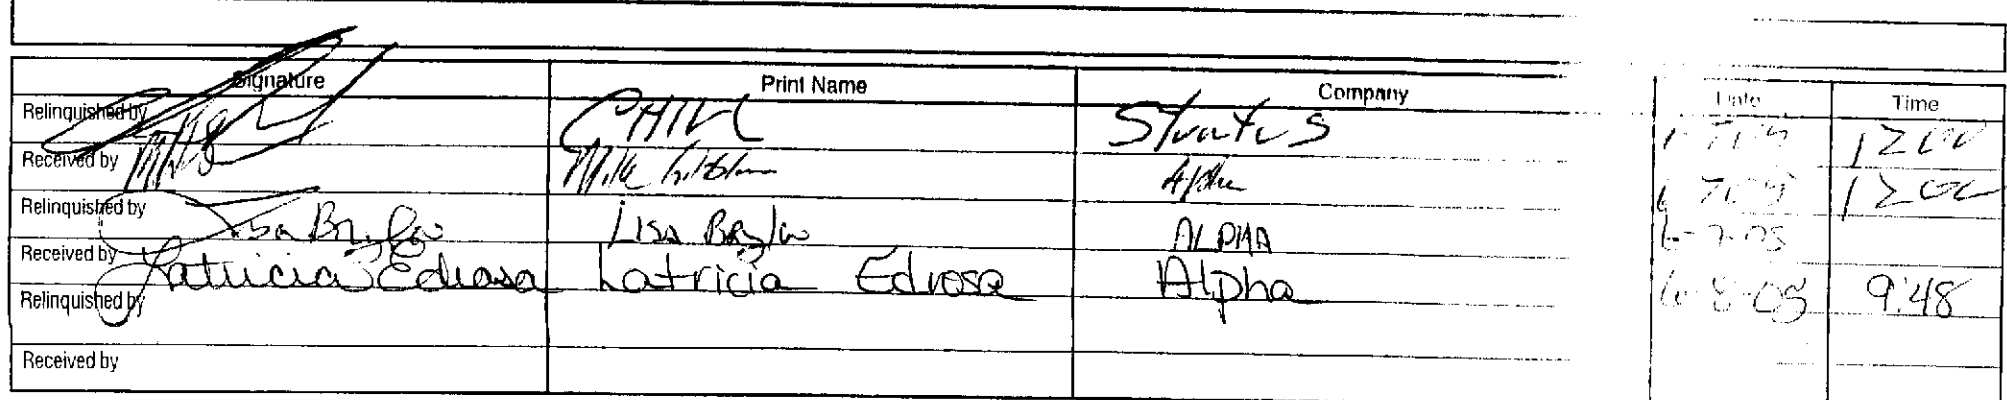 Signature Print Name Company Date Time
Relinquished by Stratus 1200
Received by Mike Alpha 1200
Relinquished by Lisa Lisa ALPHA 6-7-05
Received by Latricia Edrosa Latricia Edrosa Alpha 6-8-05 9:48
Relinquished by
Received by